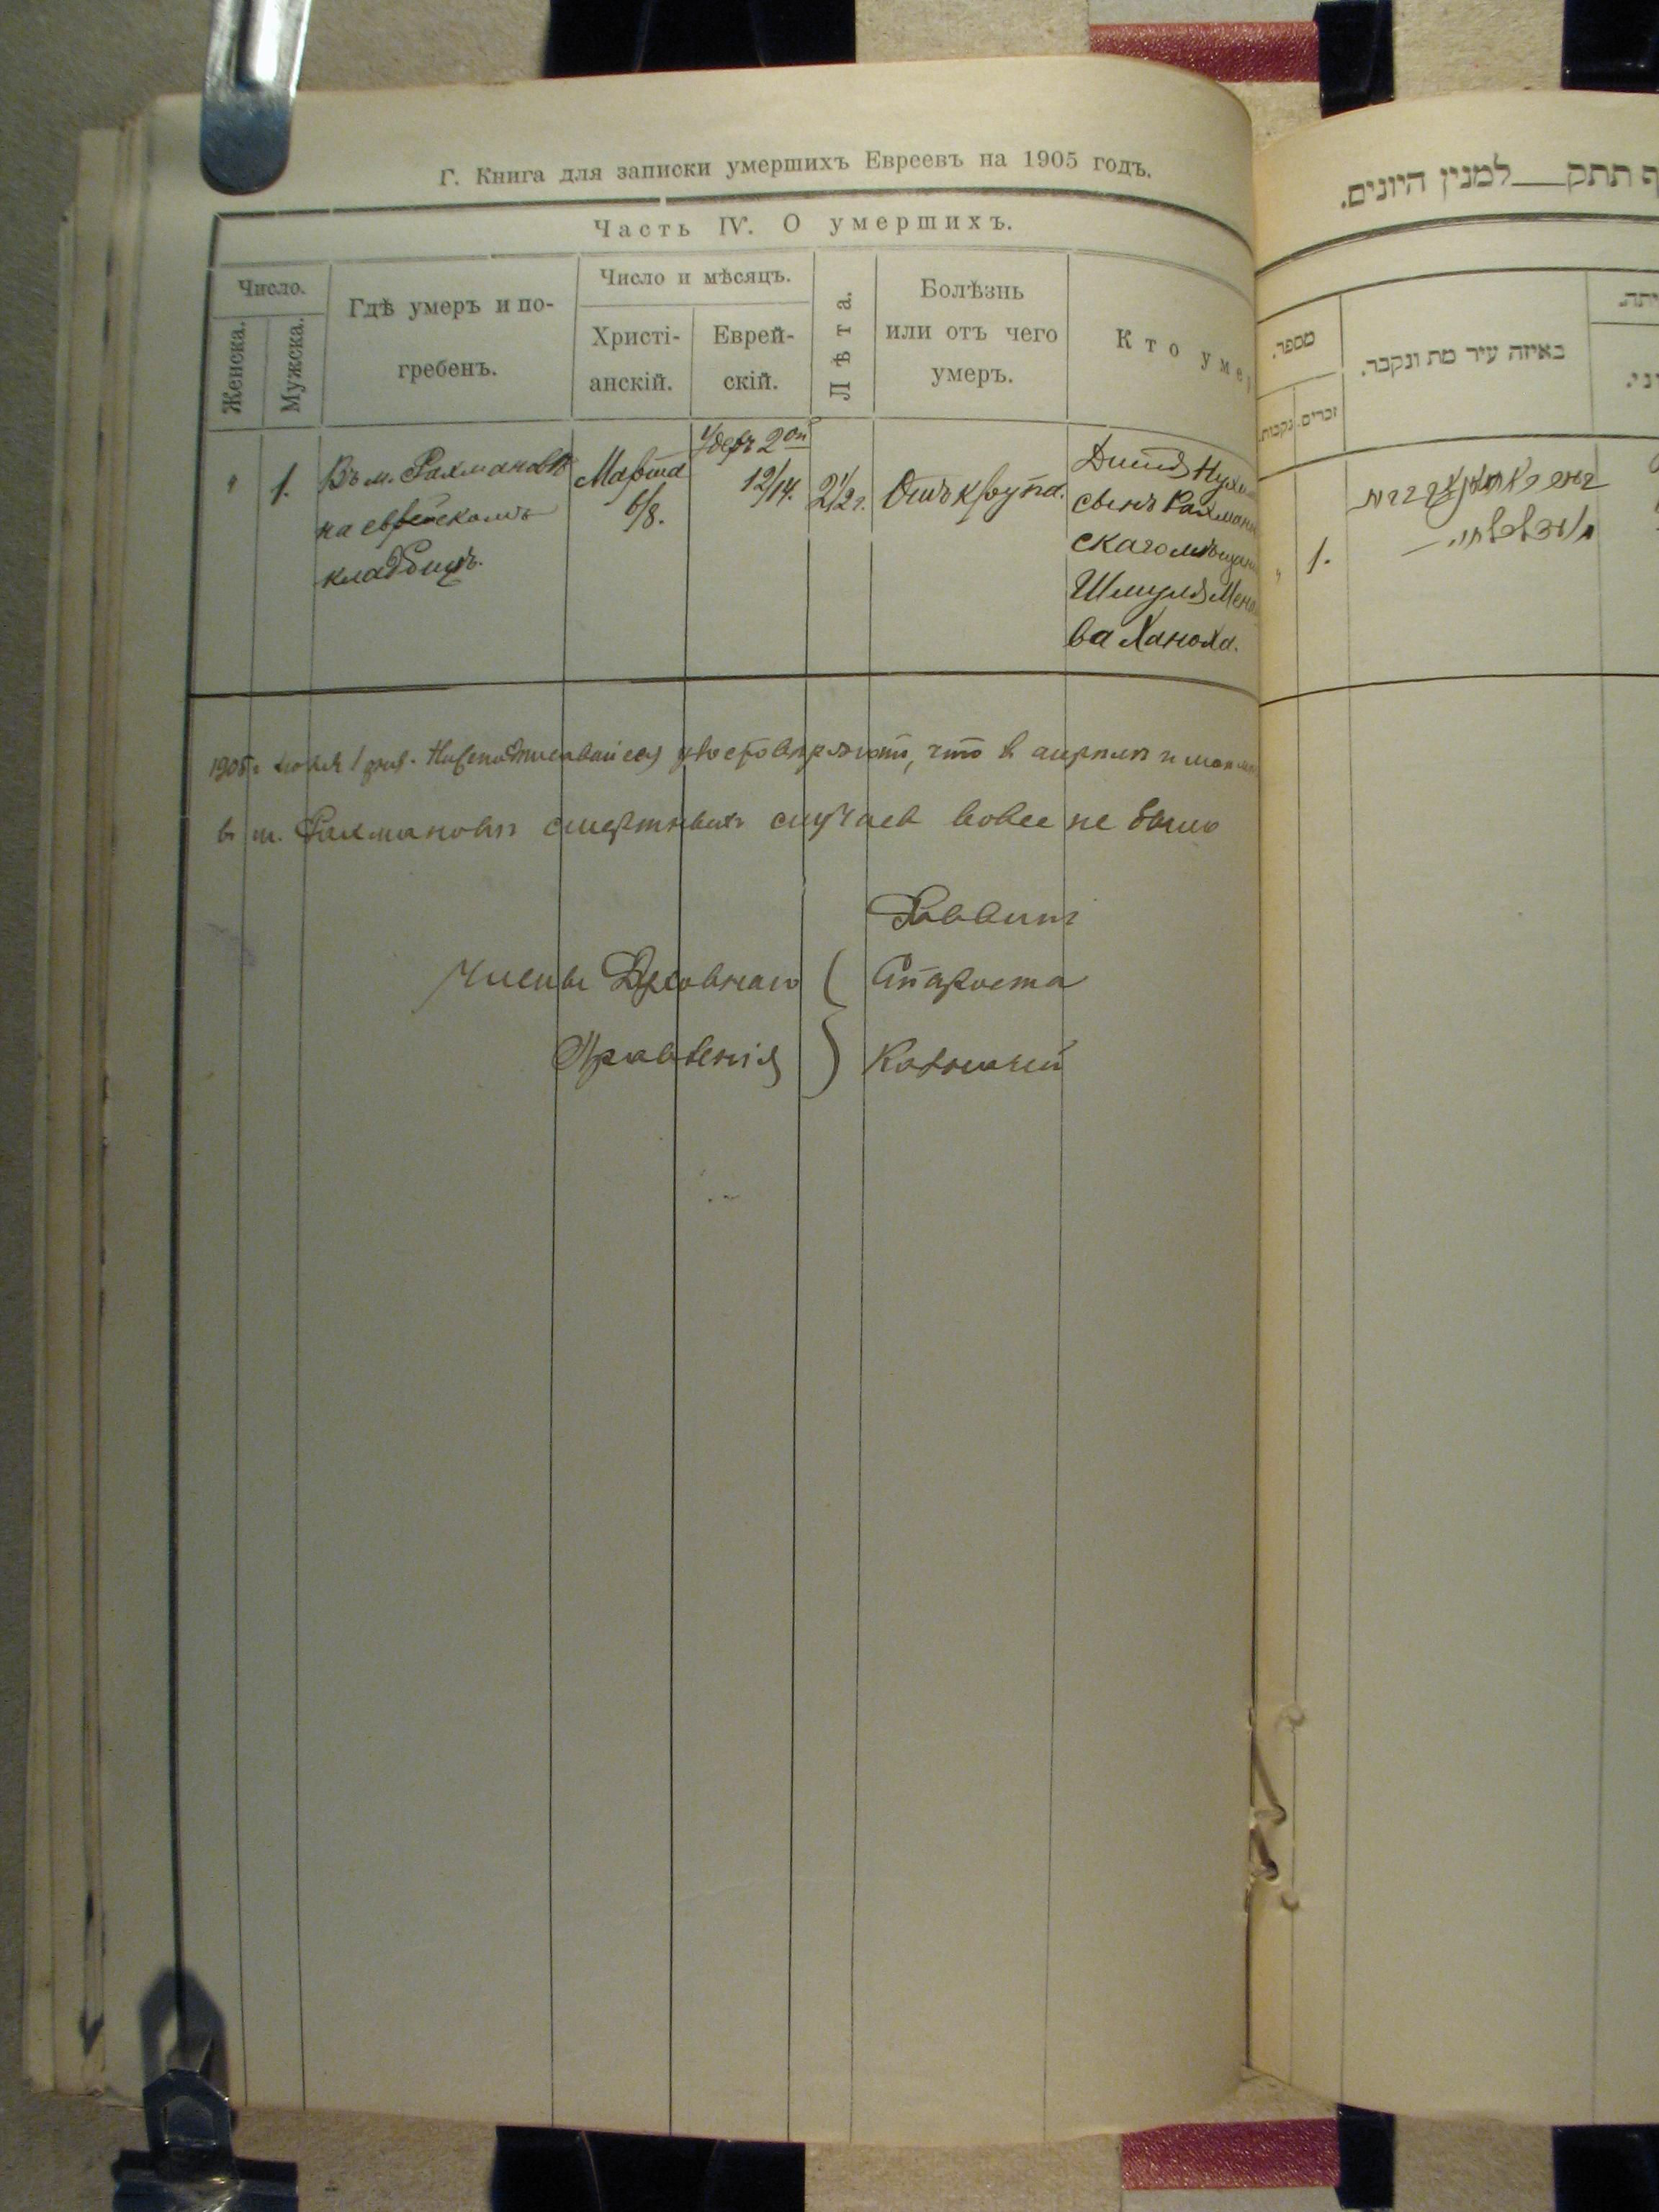 Г. Книга для записки умершихъ Евреевъ на 1905 годъ.
Часть IV. О умершихъ.
Число.
Женска.
Мужска.
Гдѣ умеръ и по-
гребенъ.
Число и мѣсяцъ.
Христі-
анскій.
Еврей-
скій.
Лѣта.
Болѣзнь
или отъ чего
умеръ.
Кто умер
" 1.
Въ м. Рахмановѣ
на еврейскомъ
кладбищѣ.
Марта
6/8.
Удеръ 2ой
12/14.
2 1/2 г.
Отъ крупа.
Дитя Нухи
сынъ Рахманов
скаго мѣщани
Шмуля
ва Ханоха.
1905 г. 1 дня. Нижеподписавшіеся удостовѣряютъ, что в апрѣлѣ и
в м. Рахмановѣ смертныхъ случаев вовсе не было
Раввинъ
Члены Духовнаго
Староста
Правленія
Казначей
ף תתק למנין היונים.
מספר.
זכרים.
נקבות.
באיזה עיר מת ונקבר.
" 1.